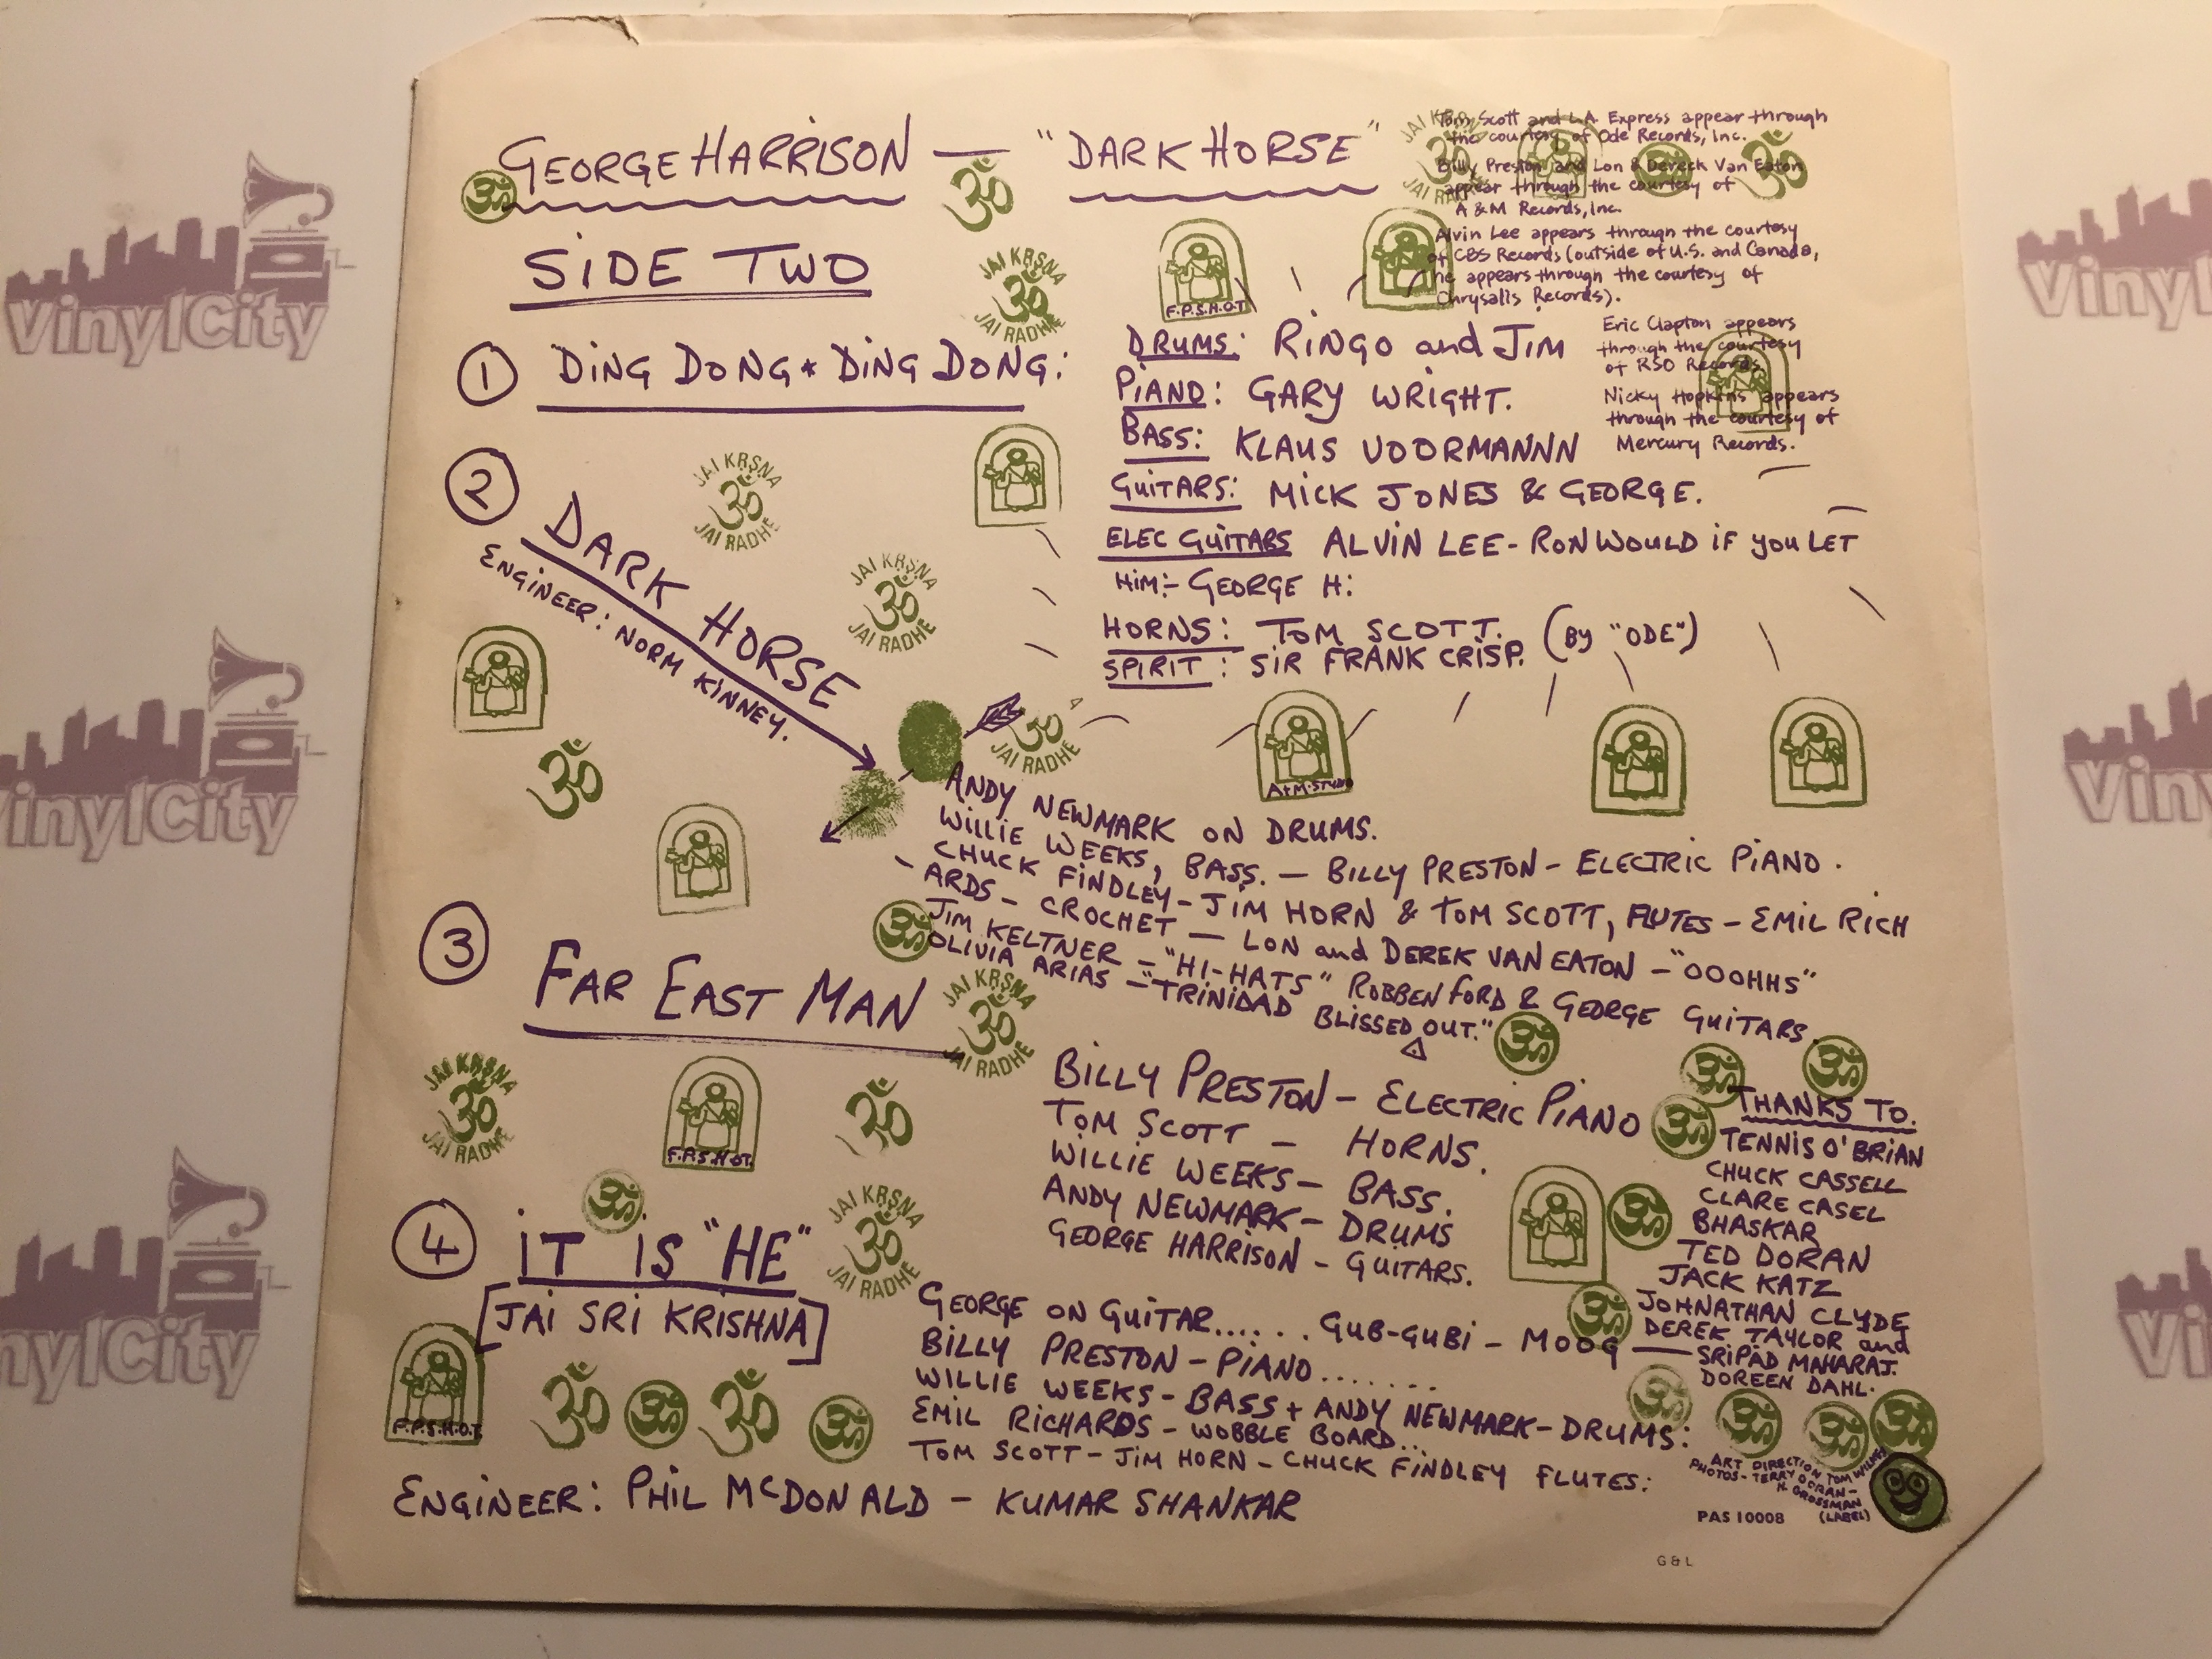 GEORGE HARRISON — "DARK HORSE"
SIDE TWO
Tom Scott and L.A. Express appear through
the courtesy of Ode Records, Inc.
Billy Preston and Lon & Dereck Van Eaton
appear through the courtesy of
A & M Records, Inc.
Alvin Lee appears through the courtesy
of CBS Records (outside of U.S. and Canada,
he appears through the courtesy of
Chrysalis Records).
Eric Clapton appears
through the courtesy
of RSO Records
Nicky Hopkins appears
through the courtesy of
Mercury Records.
① DING DONG * DING DONG:
DRUMS: RINGO and JIM
PIANO: GARY WRIGHT.
BASS: KLAUS VOORMANNN
GUITARS: MICK JONES & GEORGE.
ELEC GUITARS ALVIN LEE - RON WOULD IF YOU LET
HIM:- GEORGE H:
HORNS: TOM SCOTT. (BY "ODE")
SPIRIT: SIR FRANK CRISP.
② DARK HORSE
ENGINEER: NORM KINNEY.
ANDY NEWMARK ON DRUMS.
WILLIE WEEKS, BASS. — BILLY PRESTON - ELECTRIC PIANO.
CHUCK FINDLEY - JIM HORN & TOM SCOTT, FLUTES - EMIL RICH
- ARDS - CROCHET — LON and DEREK VAN EATON - "OOOHHS"
JIM KELTNER - "HI-HATS" ROBBEN FORD & GEORGE GUITARS.
OLIVIA ARIAS - "TRINIDAD BLISSED OUT."
③ FAR EAST MAN
BILLY PRESTON - ELECTRIC PIANO
TOM SCOTT - HORNS.
WILLIE WEEKS - BASS.
ANDY NEWMARK - DRUMS
GEORGE HARRISON - GUITARS.
THANKS TO.
TENNIS O'BRIAN
CHUCK CASSELL
CLARE CASEL
BHASKAR
TED DORAN
JACK KATZ
JOHNATHAN CLYDE
DEREK TAYLOR and
SRIPAD MAHARAJ.
DOREEN DAHL.
④ IT IS "HE"
[JAI SRI KRISHNA]
GEORGE ON GUITAR...... GUB-GUBI - MOOG —
BILLY PRESTON - PIANO.......
WILLIE WEEKS - BASS + ANDY NEWMARK - DRUMS:
EMIL RICHARDS - WOBBLE BOARD...
TOM SCOTT - JIM HORN - CHUCK FINDLEY FLUTES:
ENGINEER: PHIL McDONALD - KUMAR SHANKAR
ART DIRECTION TOM WILKES
PHOTOS - TERRY DORAN -
H. GROSSMAN
(LABEL)
PAS 10008
G & L
JAI KRṢNA
ॐ
JAI RADHE
F.P.S.H.O.T.
JAI KRṢNA
ॐ
JAI RADHE
JAI KRṢNA
ॐ
JAI RADHE
ॐ
JAI RADHE
A+M.STUDIO
JAI KRṢNA
ॐ
JAI RADHE
JAI KRṢNA
ॐ
JAI RADHE
F.P.S.H.O.T.
JAI KRṢNA
ॐ
JAI RADHE
F.P.S.H.O.T.
VinylCity
VinylCity
VinylCity
VinylCity